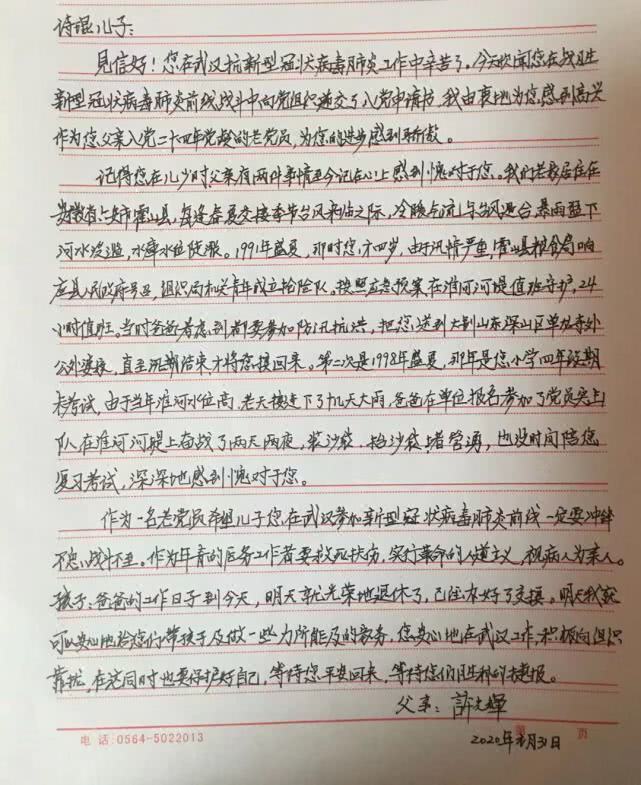 诗琨儿子:
见信好!您在武汉抗新型冠状病毒肺炎工作中辛苦了,今天欣闻您在战胜
新型冠状病毒肺炎前线战斗中向党组织递交了入党申请书,我由衷地为您感到高兴
作为您父亲入党二十四年党龄的老党员,为您的进步感到骄傲。
记得您在儿少时父亲有两件事情至今记在心上感到愧对于您。我们老家居住在
安徽省六安市霍山县,每逢春夏交接季节台风来临之际,冷暖气流与台风迎合,暴雨盈下
河水泛滥,水库水位陡涨。1991年盛夏,那时您才四岁,由于汛情严重,霍山县粮食局响
应县人民政府号召,组织局机关青年成立抢险队。按照应急预案在淮河河堤值班守护,24
小时值班。当时爸爸考虑到都要参加防汛抗洪,把您送到大别山东深山区单龙寺外
公外婆家,直至汛期结束才将您接回来。第二次是1998年盛夏,那年是您小学四年级期
末考试,由于当年淮河水位高,老天接连下了几天大雨,爸爸在单位报名参加了党员突击
队在淮河河堤上奋战了两天两夜,装沙袋、抬沙袋、堵管涌,也没时间陪您
复习考试,深深地感到愧对于您。
作为一名老党员希望儿子您在武汉参加新型冠状病毒肺炎前线一定要冲锋
不怠,战斗不止。作为年青的医务工作者要救死扶伤,实行革命的人道主义,视病人为亲人。
孩子:爸爸的工作日子到今天,明天就光荣地退休了,已经办好了交接。明天我就
可以安心地给您们带孩子及做一些力所能及的家务,您安心地在武汉工作,积极向组织
靠拢,在这同时也要保护好自己,等待您平安回来,等待您们胜利的捷报。
父亲:许光辉
电 话:0564-5022013
页
2020年 月31日